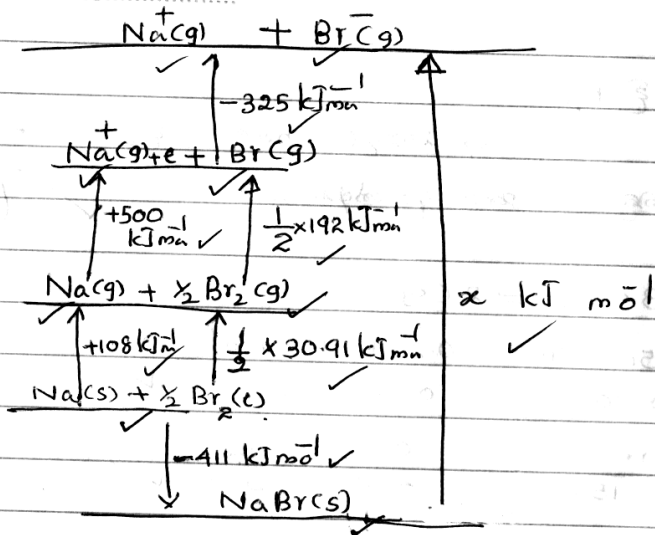 Na⁺(g) + Br⁻(g)
-325 kJmol⁻¹
Na⁺(g)+e + Br(g)
+500 kJmol⁻¹ ½×192 kJmol⁻¹
Na(g) + ½Br₂(g)
x kJ mol⁻¹
+108 kJmol⁻¹ ½ × 30.91 kJmol⁻¹
Na(s) + ½ Br₂(l).
-411 kJ mol⁻¹
NaBr(s)